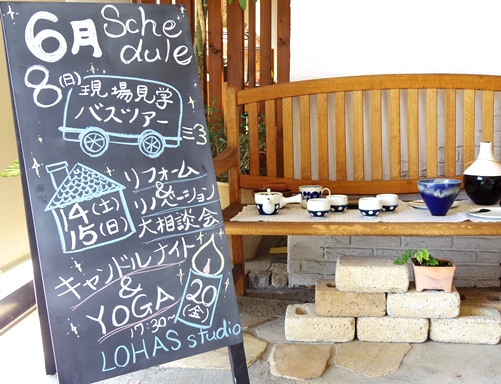 6月 Schedule
8(日) 現場見学
バスツアー
14(土)
15(日)
リフォーム
&
リノベーション
大相談会
キャンドルナイト
&
YOGA
17:30~
20
(金)
LOHAS studio